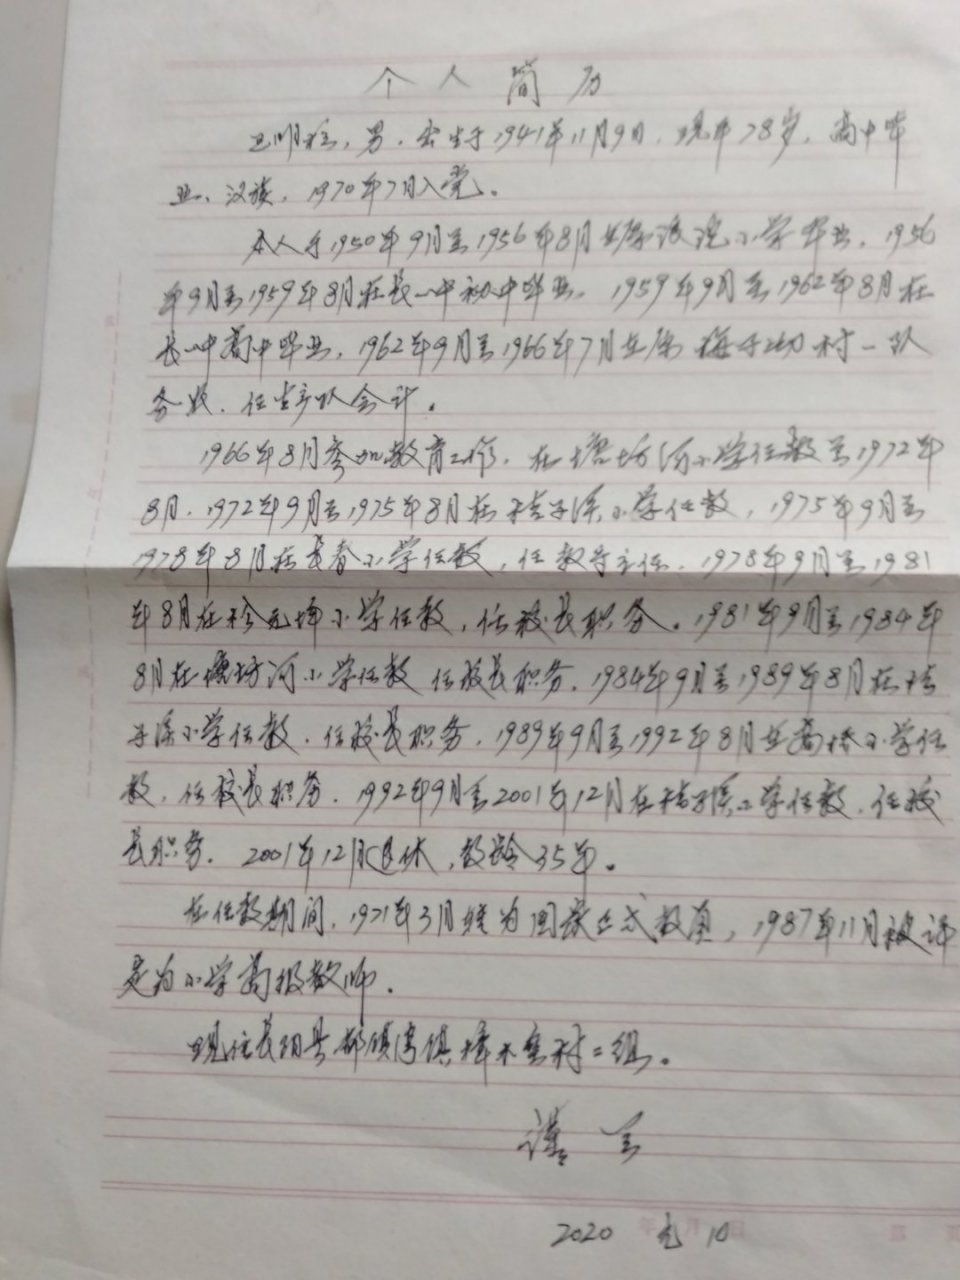 个人简历
男,出生于1941年11月9日,现年78岁,高中毕
业、汉族,1970年7月入党。
本人于1950年9月至1956年8月在 小学毕业,1956
年9月至1959年8月在长一中初中毕业。1959年9月至1962年8月在
长一中高中毕业,1962年9月至1966年7月在 村一队
务农、任生产队会计。
1966年8月参加教育工作,在塘坊河小学任教至1972年
8月,1972年9月至1975年8月在桔子溪小学任教,1975年9月至
1978年8月在长春小学任教,任教导主任,1978年9月至1981
年8月在 小学任教,任校长职务。1981年9月至1984年
8月在塘坊河小学任教 任校长职务,1984年9月至1989年8月在桔
子溪小学任教,任校长职务,1989年9月至1992年8月在高桥小学任
教,任校长职务,1992年9月至2001年12月在桔子溪小学任教,任校
长职务。2001年12月退休,教龄35年。
在任教期间,1971年3月转为国家正式教员,1987年11月被评
定为小学高级教师。
现住长阳县都镇湾镇 村二组。
谨呈
2020 元 10
年 月 日
第 页